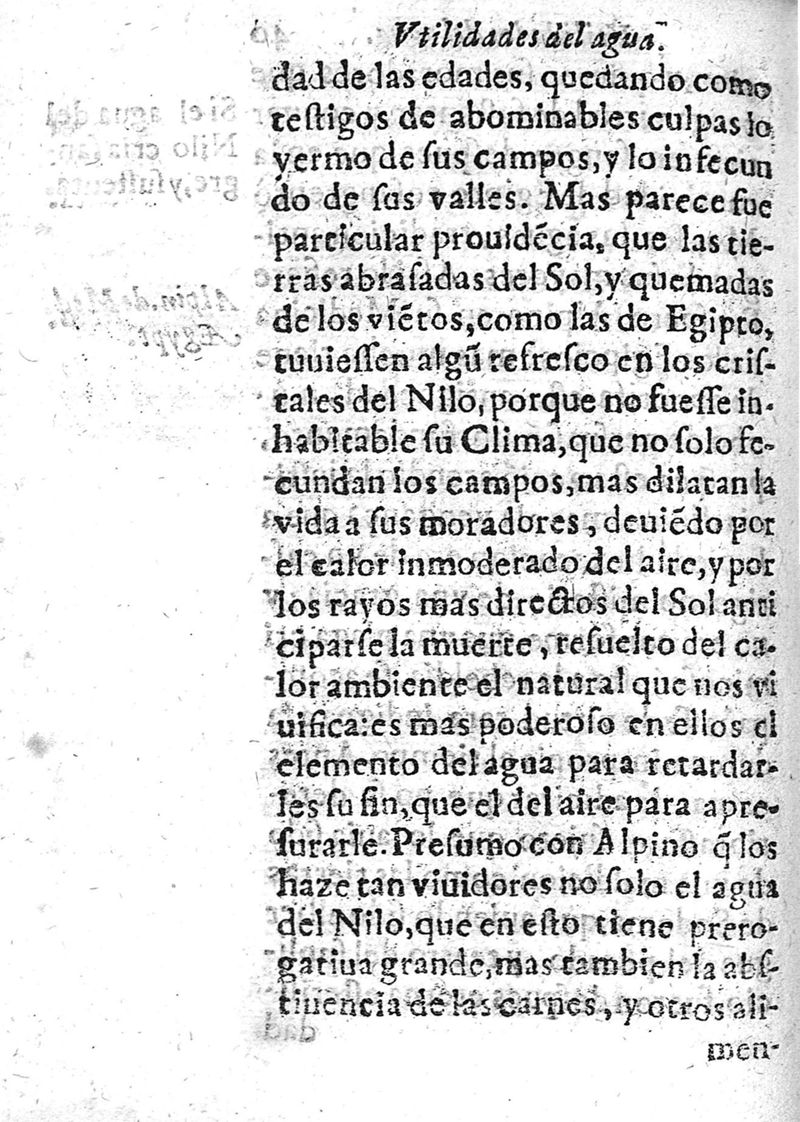 Vtilidades del agua.
dad de las edades, quedando como
testigos de abominables culpas lo
yermo de sus campos, y lo infecun
do de sus valles. Mas parece fue
particular prouidẽcia, que las tie-
rras abrasadas del Sol, y quemadas
de los viẽtos, como las de Egipto,
tuuiessen algũ refresco en los cris-
tales del Nilo, porque no fuesse in-
habitable su Clima, que no solo fe-
cundan los campos, mas dilatan la
vida a sus moradores, deuiẽdo por
el calor inmoderado del aire, y por
los rayos mas directos del Sol anti
ciparse la muerte, resuelto del ca-
lor ambiente el natural que nos vi
uifica: es mas poderoso en ellos el
elemento del agua para retardar-
les su fin, que el del aire para apre-
surarle. Presumo con Alpino q̃ los
haze tan viuidores no solo el agua
del Nilo, que en esto tiene prero-
gatiua grande, mas tambien la abs-
tinencia de las carnes, y otros ali-
men-